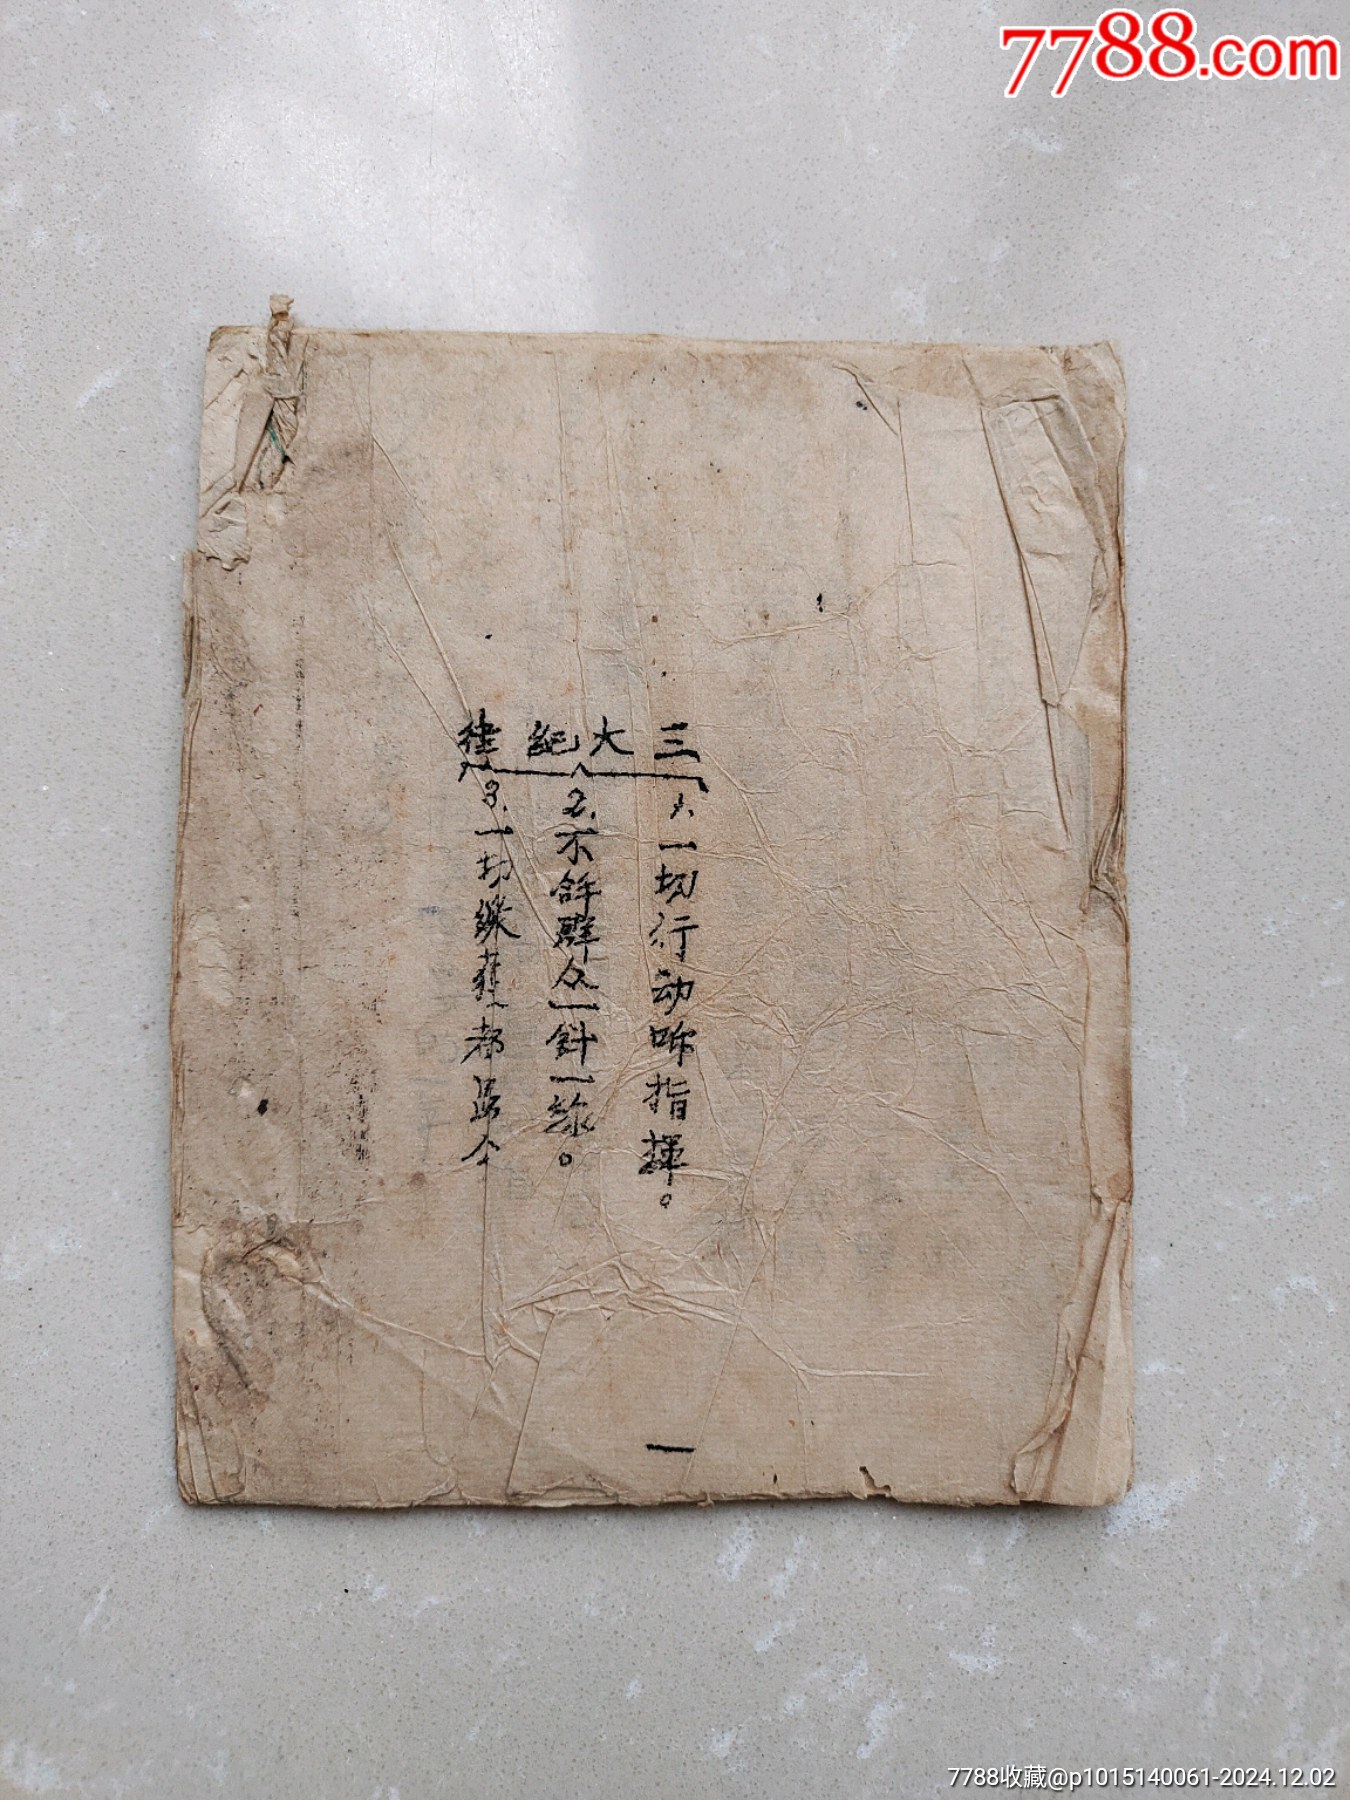 7788.com
三大紀律
1.一切行动听指揮。
2.不拿群众一針一線。
3.一切缴获都归公
一
7788收藏@p1015140061-2024.12.02